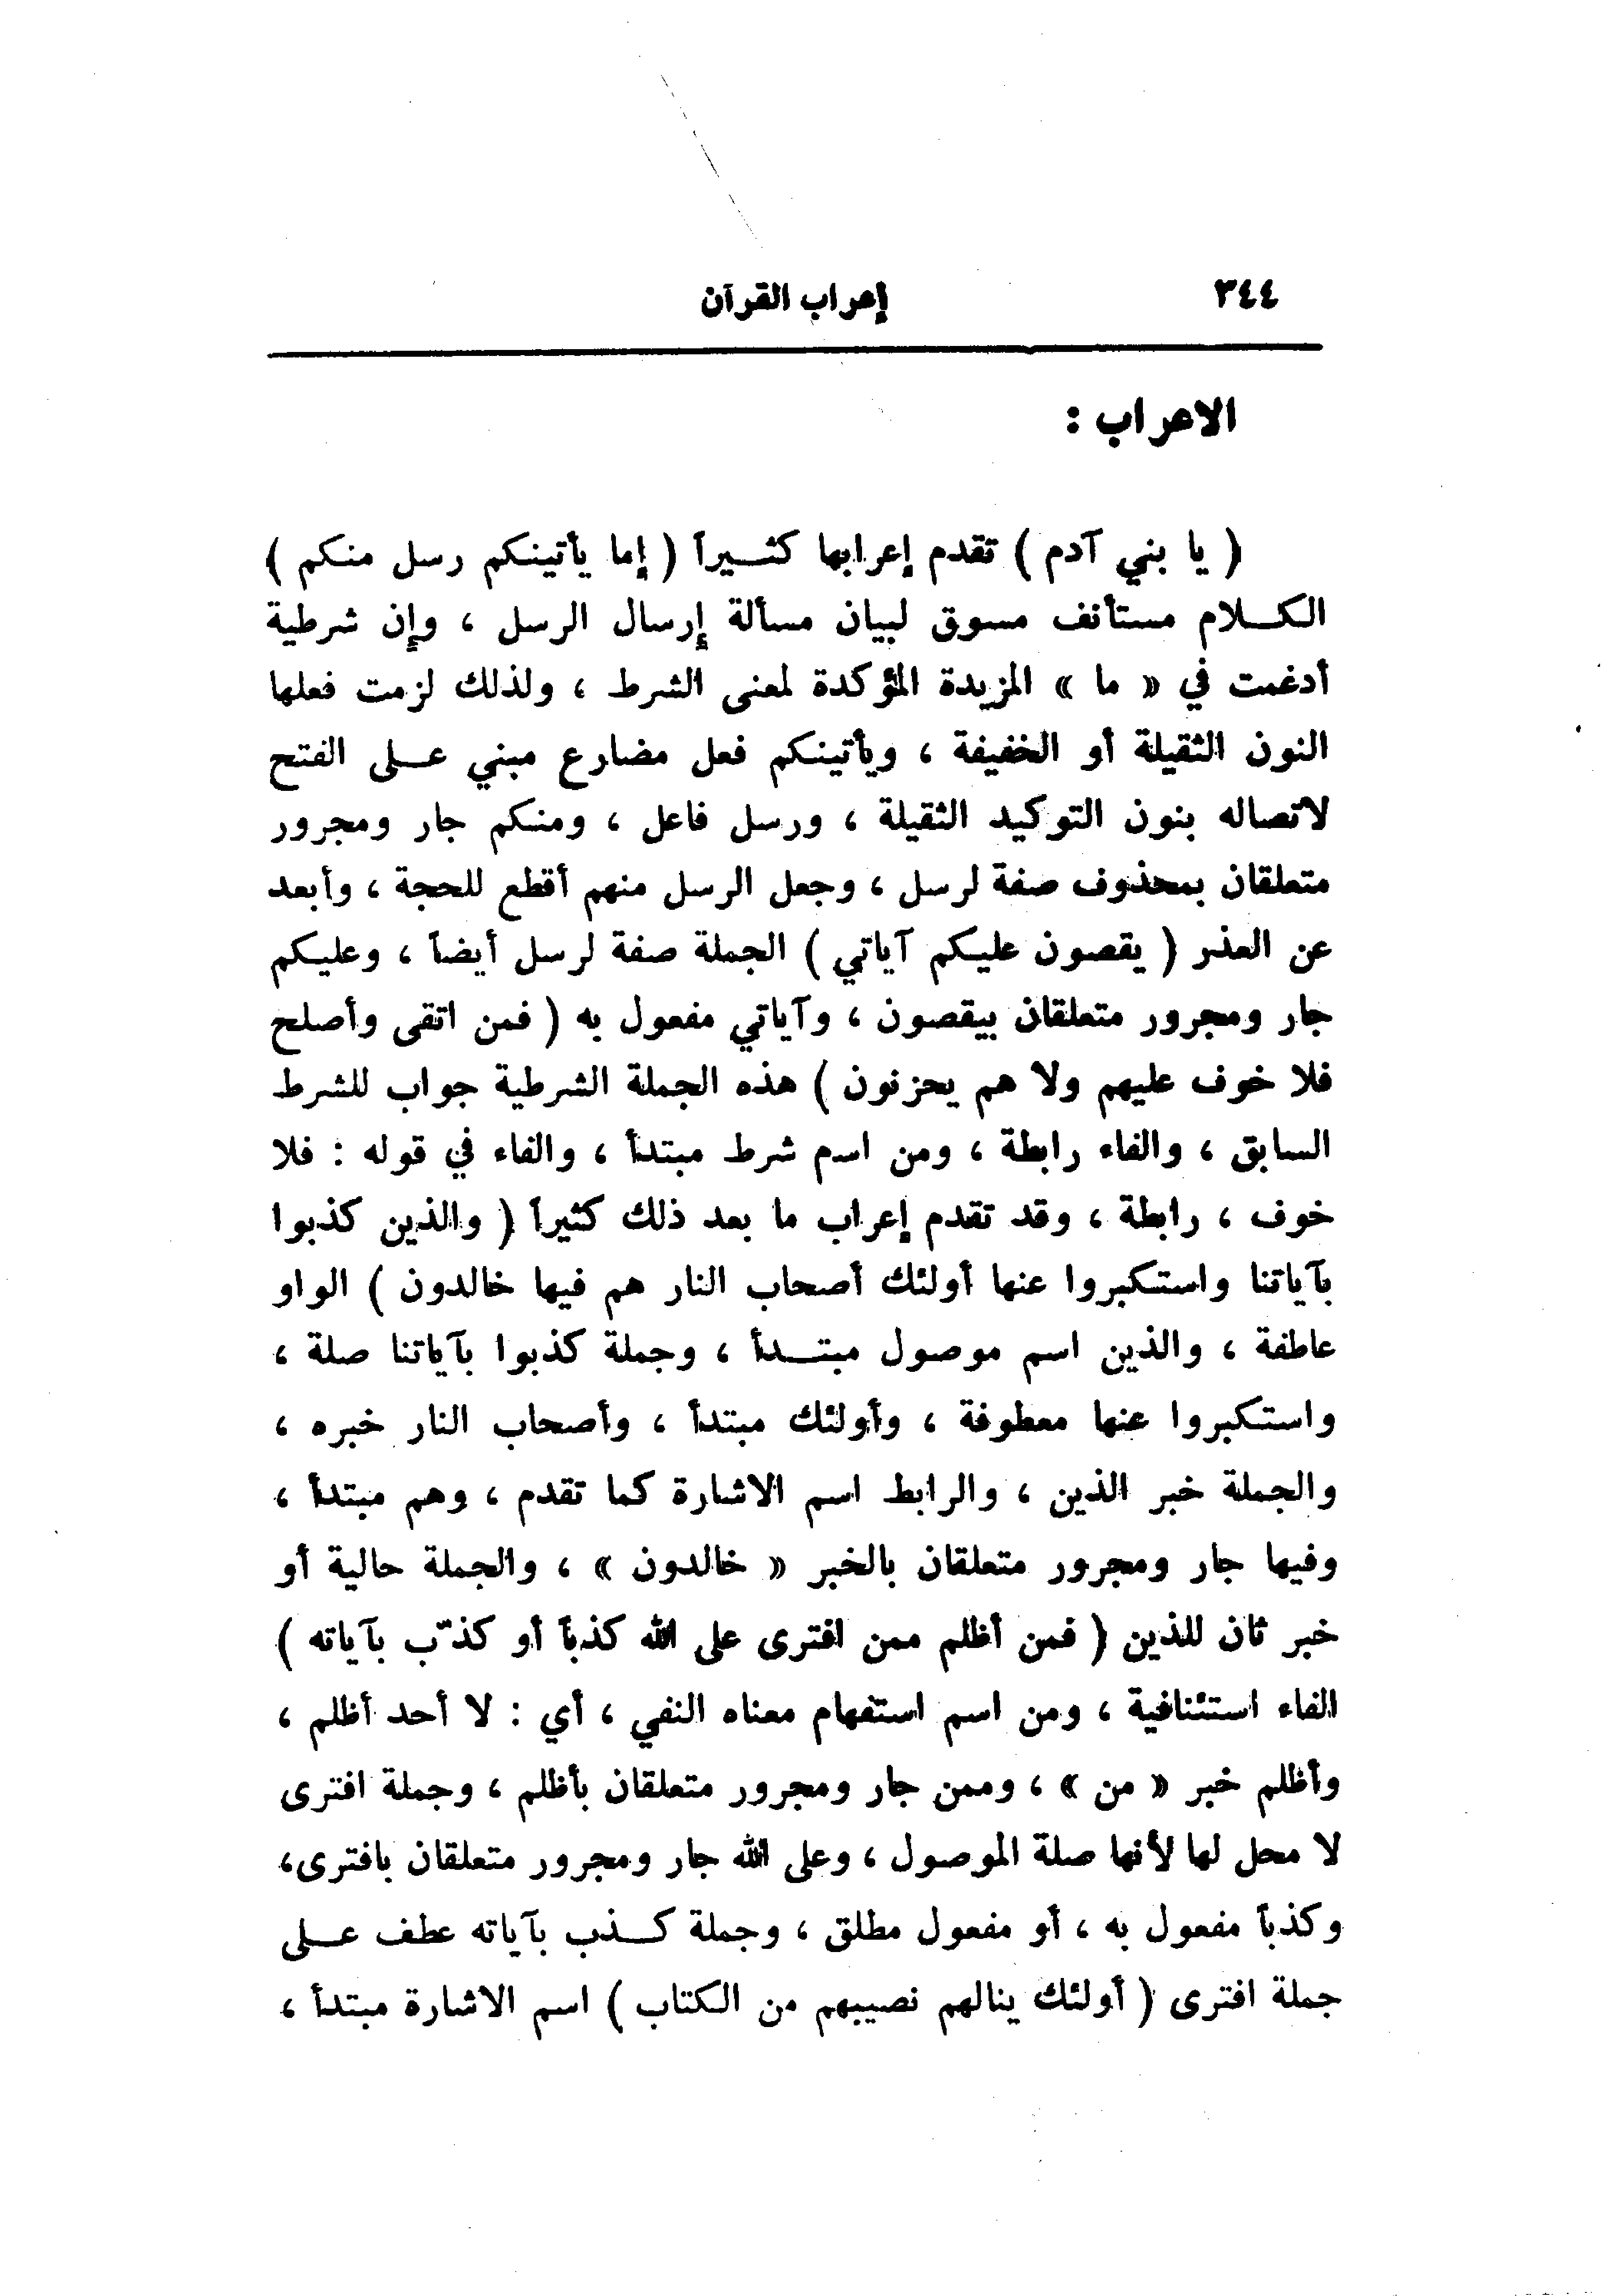 ٣٤٤
إعراب القرآن
الاعراب :
( يا بني آدم ) تقدم إعرابها كثيراً ( إما يأتينكم رسل منكم )
الكلام مستأنف مسوق لبيان مسألة إرسال الرسل ، وإن شرطية
أدغمت في « ما » المزيدة المؤكدة لمعنى الشرط ، ولذلك لزمت فعلها
النون الثقيلة أو الخفيفة ، ويأتينكم فعل مضارع مبني على الفتح
لاتصاله بنون التوكيد الثقيلة ، ورسل فاعل ، ومنكم جار ومجرور
متعلقان بمحذوف صفة لرسل ، وجعل الرسل منهم أقطع للحجة ، وأبعد
عن العذر ( يقصون عليكم آياتي ) الجملة صفة لرسل أيضاً ، وعليكم
جار ومجرور متعلقان بيقصون ، وآياتي مفعول به ( فمن اتقى وأصلح
فلا خوف عليهم ولا هم يحزنون ) هذه الجملة الشرطية جواب للشرط
السابق ، والفاء رابطة ، ومن اسم شرط مبتدأ ، والفاء في قوله : فلا
خوف ، رابطة ، وقد تقدم إعراب ما بعد ذلك كثيراً ( والذين كذبوا
بآياتنا واستكبروا عنها أولئك أصحاب النار هم فيها خالدون ) الواو
عاطفة ، والذين اسم موصول مبتدأ ، وجملة كذبوا بآياتنا صلة ،
واستكبروا عنها معطوفة ، وأولئك مبتدأ ، وأصحاب النار خبره ،
والجملة خبر الذين ، والرابط اسم الاشارة كما تقدم ، وهم مبتدأ ،
وفيها جار ومجرور متعلقان بالخبر « خالدون » ، والجملة حالية أو
خبر ثان للذين ( فمن أظلم ممن افترى على الله كذباً أو كذّب بآياته )
الفاء استئنافية ، ومن اسم استفهام معناه النفي ، أي : لا أحد أظلم ،
وأظلم خبر « من » ، وممن جار ومجرور متعلقان بأظلم ، وجملة افترى
لا محل لها لأنها صلة الموصول ، وعلى الله جار ومجرور متعلقان بافترى،
وكذباً مفعول به ، أو مفعول مطلق ، وجملة كذب بآياته عطف على
جملة افترى ( أولئك ينالهم نصيبهم من الكتاب ) اسم الاشارة مبتدأ ،